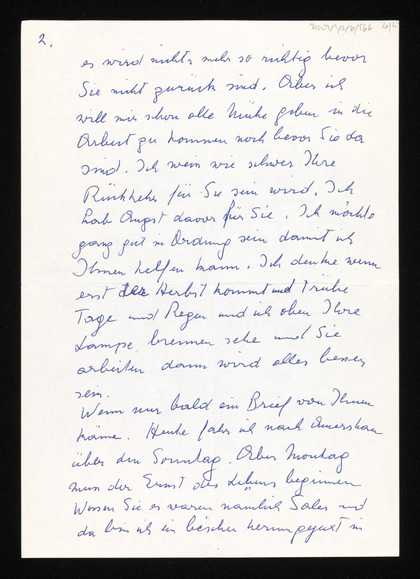 2.
es wird nichts mehr so richtig bevor
Sie nicht zurück sind. Aber ich
will mir schon alle Mühe geben in die
Arbeit zu kommen noch bevor Sie da
sind. Ich weiss wie schwer Ihre
Rückkehr für Sie sein wird. Ich
hab Angst davor für Sie. Ich möchte
ganz gut in Ordnung sein damit ich
Ihnen helfen kann. Ich denke wenn
erst der Herbst kommt und trübe
Tage und Regen und ich oben Ihre
Lampe brennen sehe und Sie
arbeiten dann wird alles besser
sein.
Wenn nur bald ein Brief von Ihnen
käme. Heute fahr ich nach Amersham
über den Sonntag. Aber Montag
muss der Ernst des Lebens beginnen
Wissen Sie es waren nämlich Sales und
da bin ich ein bischen herumgejagt in